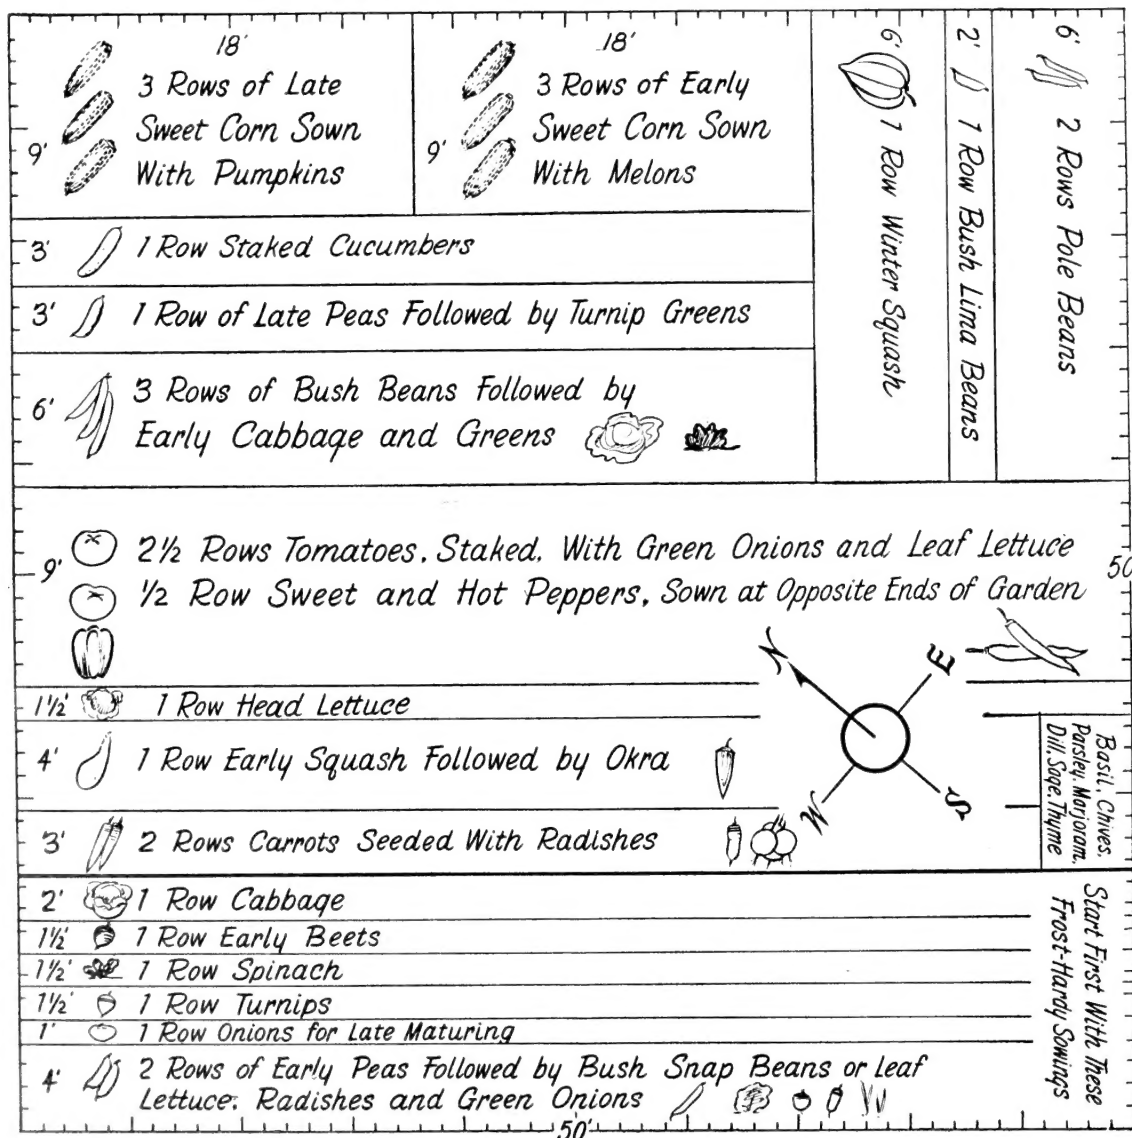 18'
9'
3 Rows of Late
Sweet Corn Sown
With Pumpkins
18'
9'
3 Rows of Early
Sweet Corn Sown
With Melons
6' 1 Row Winter Squash
2' 1 Row Bush Lima Beans
6' 2 Rows Pole Beans
3' 1 Row Staked Cucumbers
3' 1 Row of Late Peas Followed by Turnip Greens
6' 3 Rows of Bush Beans Followed by
Early Cabbage and Greens
9' 2½ Rows Tomatoes, Staked, With Green Onions and Leaf Lettuce
½ Row Sweet and Hot Peppers, Sown at Opposite Ends of Garden
50
N
E
W
S
1½' 1 Row Head Lettuce
4' 1 Row Early Squash Followed by Okra
3' 2 Rows Carrots Seeded With Radishes
Basil, Chives,
Parsley, Marjoram,
Dill, Sage, Thyme
2' 1 Row Cabbage
1½' 1 Row Early Beets
1½' 1 Row Spinach
1½' 1 Row Turnips
1' 1 Row Onions for Late Maturing
4' 2 Rows of Early Peas Followed by Bush Snap Beans or Leaf
Lettuce, Radishes and Green Onions
Start First With These
Frost-Hardy Sowings
50'